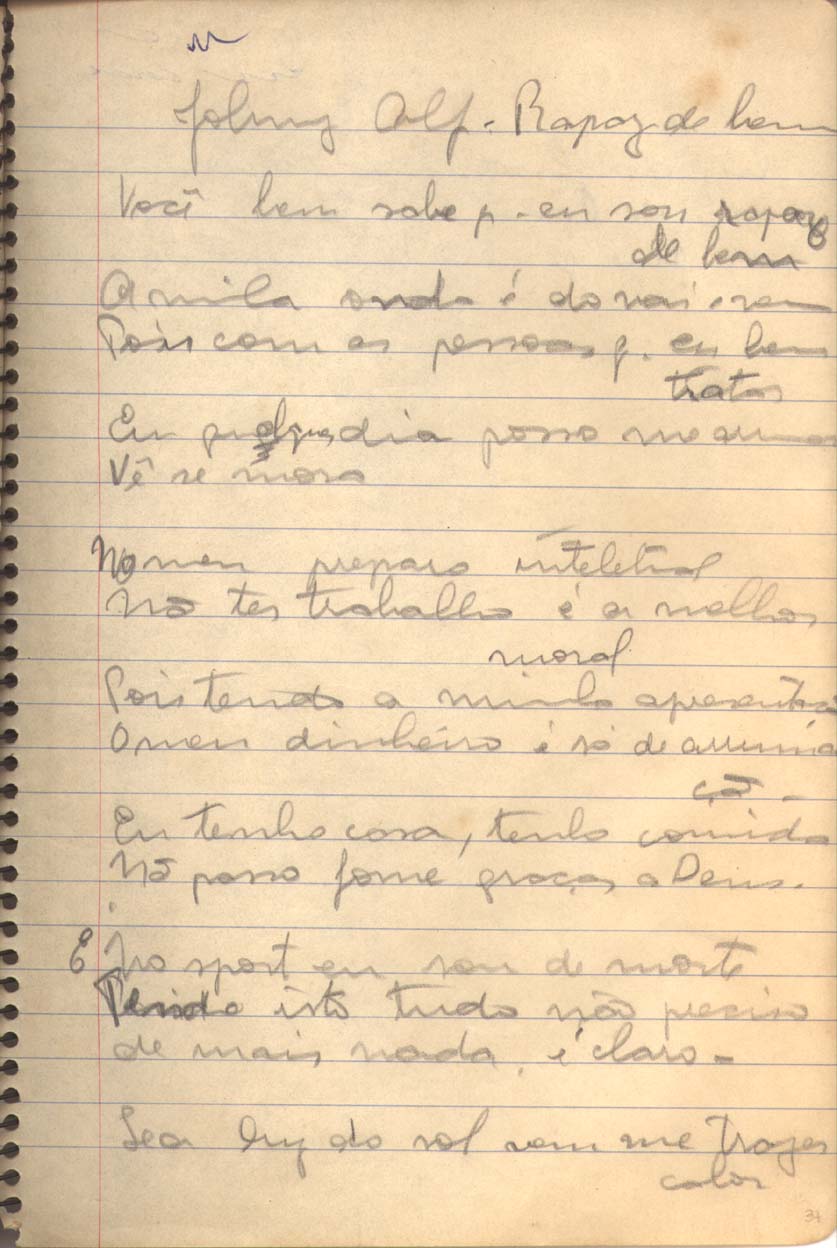 Johnny Alf - Rapaz de bem
Você bem sabe q. eu sou rapaz
de bem
A minha onda é do vai e vem
Pois com as pessoas q. eu bem
tratar
Eu qualquer dia posso me arrumar
Vê se mora
No meu preparo intelectual
Não ter trabalho é a melhor
moral
Pois tendo a minha apresentação
O meu dinheiro é só de arruma
ção -
Eu tenho casa, tenho comida
Nã passo fome graças a Deus.
E No sport eu sou de morte
Tendo isto tudo não preciso
de mais nada, é claro -
Se a luz do sol vem me trazer
calor
37